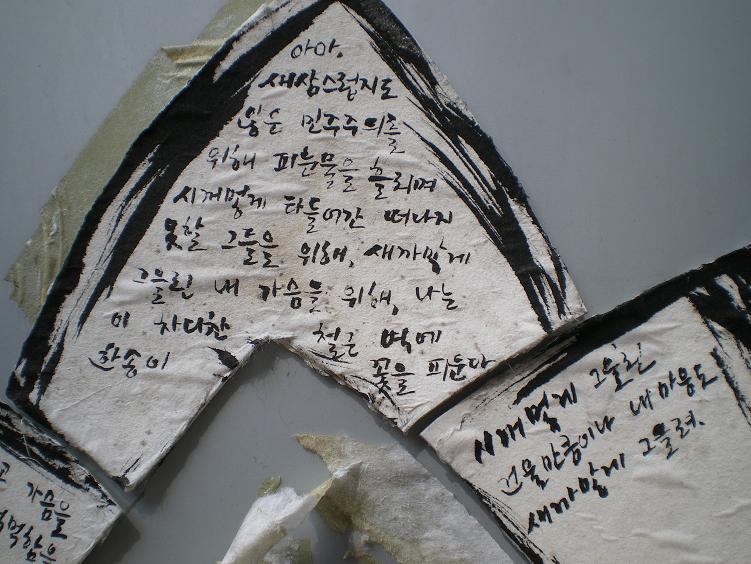 아아,
새삼스럽지도
않은 민주주의를
위해 피눈물을 흘리며
시꺼멓게 타들어간 떠나지
못할 그들을 위해, 새까맣게
그을린 내 가슴을 위해, 나는
이 차디찬 철근 벽에
한송이 꽃을 피운다
시꺼멓게 그을린
건물만큼이나 내 마음도
새까맣게 그을려.
가슴을